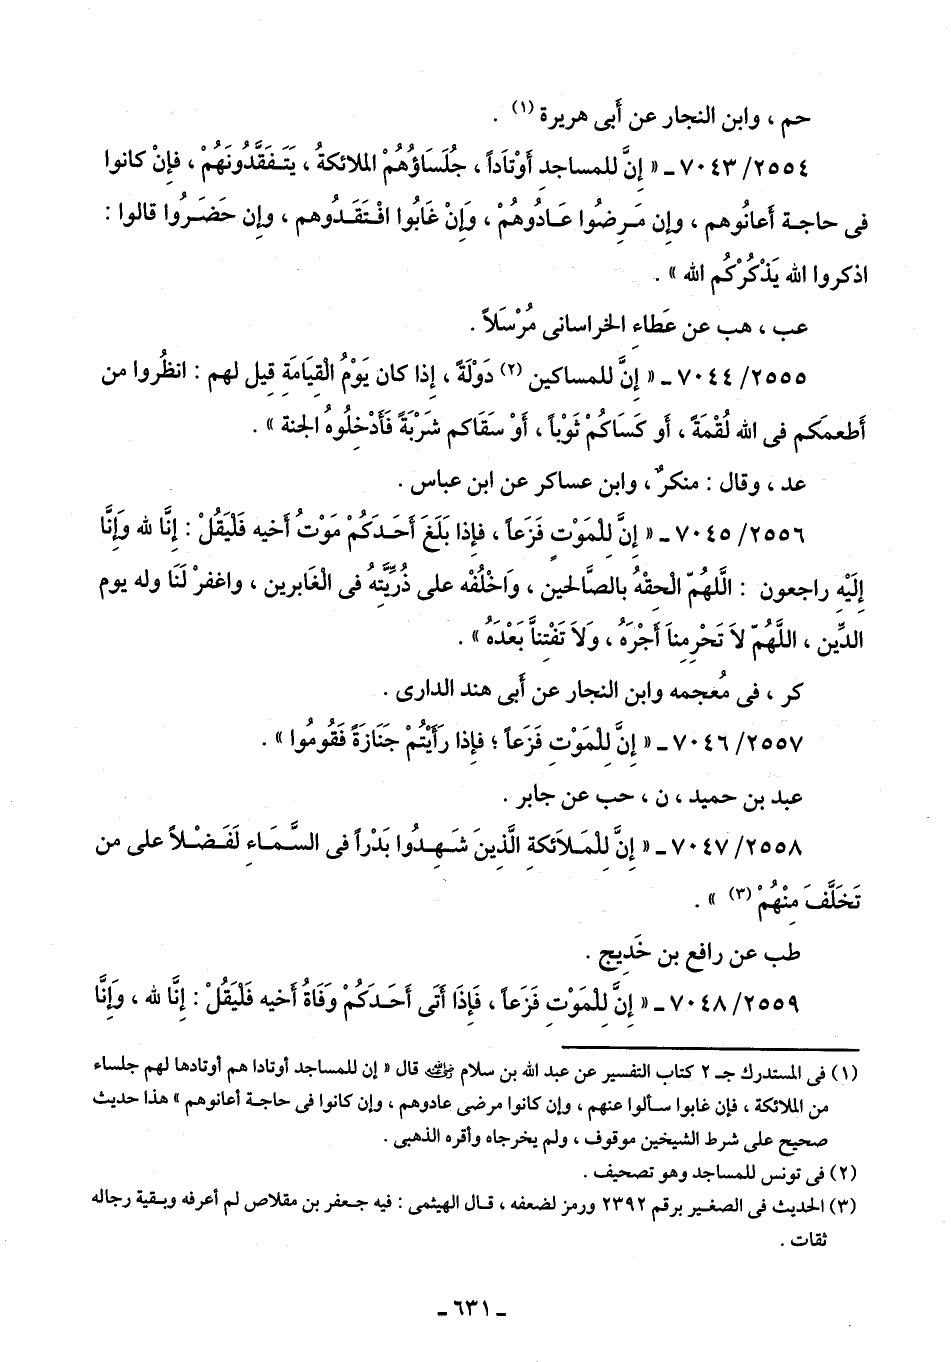 حم ، وابن النجار عن أَبى هريرة (١) .
٧٠٤٣/٢٥٥٤ ـ « إِنَّ للمساجد أَوْتَاداً ، جُلَسَاؤُهُمْ الملائكةُ ، يَتَـفَقَّدُونَهُمْ ، فإنْ كانوا
فى حاجـة أَعانُوهم ، وإن مَـرِضُوا عَـادُوهُمْ ، وَإنْ غَابُوا افْـتَقَـدُوهم ، وإن حَضَـرُوا قالوا :
اذكروا الله يَذْكُرْكُم الله » .
عب ، هب عن عَطاءِ الخراسانى مُرْسَلاً .
٧٠٤٤/٢٥٥٥ ـ « إِنَّ للمساكين (٢) دَوْلَةً ، إذا كان يَوْمُ الْقِيَامَةِ قِيل لهم : انظُروا من
أَطعمَكم فى الله لُقْمَةً ، أَو كَسَاكُمْ ثَوْباً ، أَوْ سَقَاكم شَرْبَةً فَأَدْخِلُوهُ الجنة » .
عد ، وقال : منكرٌ ، وابن عساكر عن ابن عباس .
٧٠٤٥/٢٥٥٦ ـ « إِنَّ لِلْمَوْتِ فَزَعاً ، فإِذا بَلَغَ أَحَـدَكُمْ مَوْتُ أَخيه فَلْيَقُلْ : إِنَّا لله وَإِنَّا
إِلَيْهِ راجعون : الَّلهُمّ الْحِقْهُ بالصَّالحين ، وَاخْلُفْه على ذُرِّيَّتِه فى الغَابرين ، واغفرْ لَنَا وله يوم
الدِّين ، اللَّهُمّ لاَ تَحْرِمناَ أَجْرَهُ ، وَلاَ تَفْتِناَّ بَعْدَهُ » .
كر ، فى مُعجمه وابن النجار عن أَبى هند الدارى .
٧٠٤٦/٢٥٥٧ ـ « إِنَّ لِلْمَوْتِ فَزَعاً ؛ فإذا رَأَيْتُمْ جَنَازَةً فَقُومُوا » .
عبد بن حميد ، ن ، حب عن جابر .
٧٠٤٧/٢٥٥٨ ـ « إِنَّ لِلْمَـلاَئكةِ الَّذِينَ شَـهِـدُوا بَدْراً فى السَّـمَـاءِ لَفَـضْـلاً على من
تَخَلَّفَ مِنْهُمْ (٣) » .
طب عن رافع بن خَدِيج .
٧٠٤٨/٢٥٥٩ ـ « إِنَّ لِلْمَوْتِ فَزَعاً ، فَإِذَا أَتَى أَحَـدَكُمْ وَفَاةُ أَخيه فَلْيَقُلْ : إِنَّا لله ، وَإِنَّا
(١) فى المستدرك جـ ٢ كتاب التفسير عن عبد الله بن سلام رضي الله عنه قال « إن للمساجد أوتادا هم أوتادها لهم جلساء
من الملائكة ، فإن غابوا سـألوا عنهم ، وإن كانوا مرضى عادوهم ، وإن كانوا فى حاجـة أعانوهم » هذا حديث
صحيح على شرط الشيخين موقوف ، ولم يخرجاه وأقره الذهبى .
(٢) فى تونس للمساجد وهو تصحيف .
(٣) الحديث فى الصغـير برقم ٢٣٩٢ ورمز لضعفه ، قـال الهيثمى : فيه جـعفر بن مقلاص لم أعرفه وبـقية رجاله
ثقات .
ـ ٦٣١ ـ